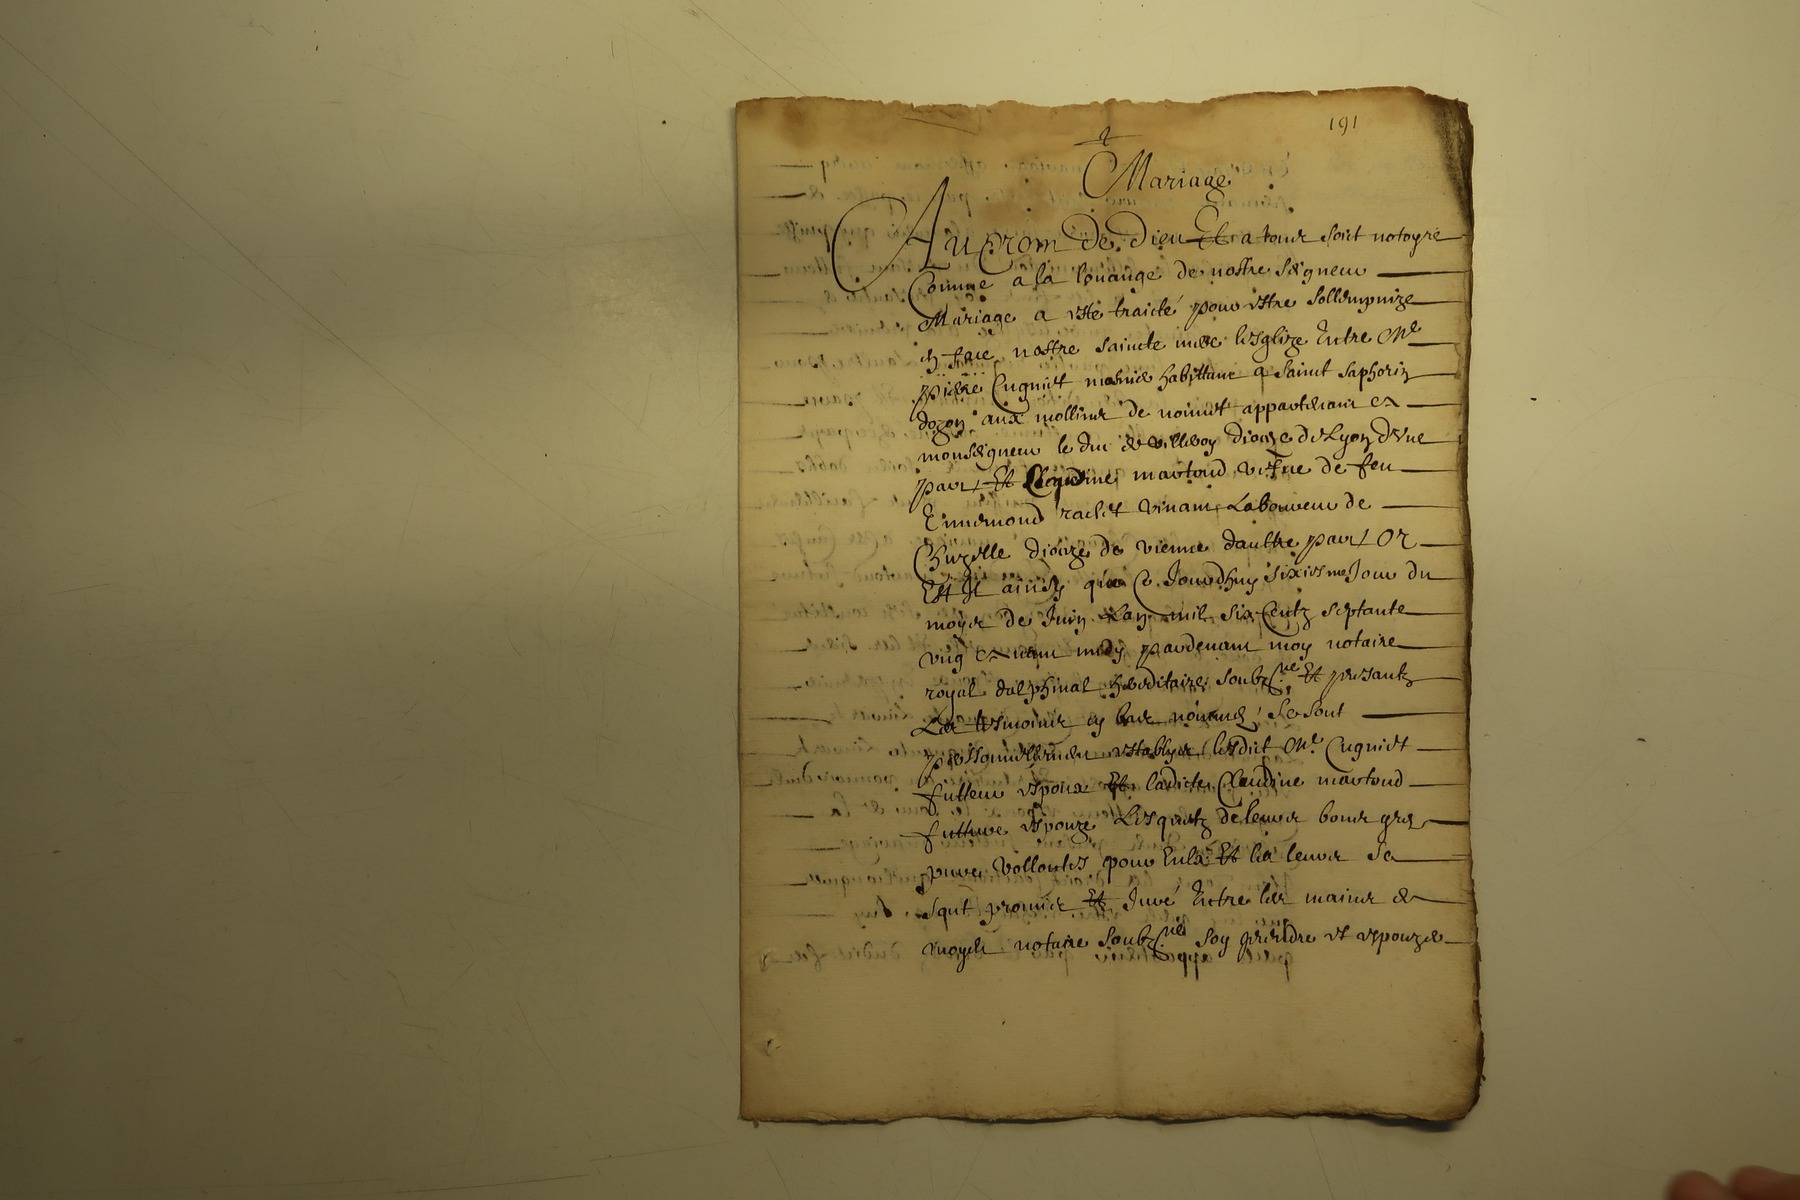 191
Mariage
Au nom de dieu Et a tous soit notoyre
Comme a la louange de nostre seigneur
Mariage a esté traicté pour estre sollempnize
en face nostre saincte mere lesglize Entre Me
pierre Cugniet habittant a saint saphorin
dozon aux mollins de appartenant a
monseigneur le duc de villeroy dioceze de Lyon dune
part Et Claudine martoud vefve de feu
Ennemond rachet vivant Laboureur de
Chuzelle dioceze de vienne daultre part Or
Est Il ainsy que Ce Jourdhuy sixiesme Jour du
moys de Juin Lan mil six Centz septante
ung avant midy pardevant moy notaire
royal dalphinal hereditaire soubzne Et presantz
Les tesmoins cy bas nommes se sont
personnellement establys lesdict Me Cugniet
futteur espoux Et ladicte Claudine martoud
futture espouze Lesquelz de leurs bons gres
pures vollontes pour Eulx Et les leurs se
sont promis Et Juré Entre les mains de
moydt notaire soubzne soy prendre et espouzer